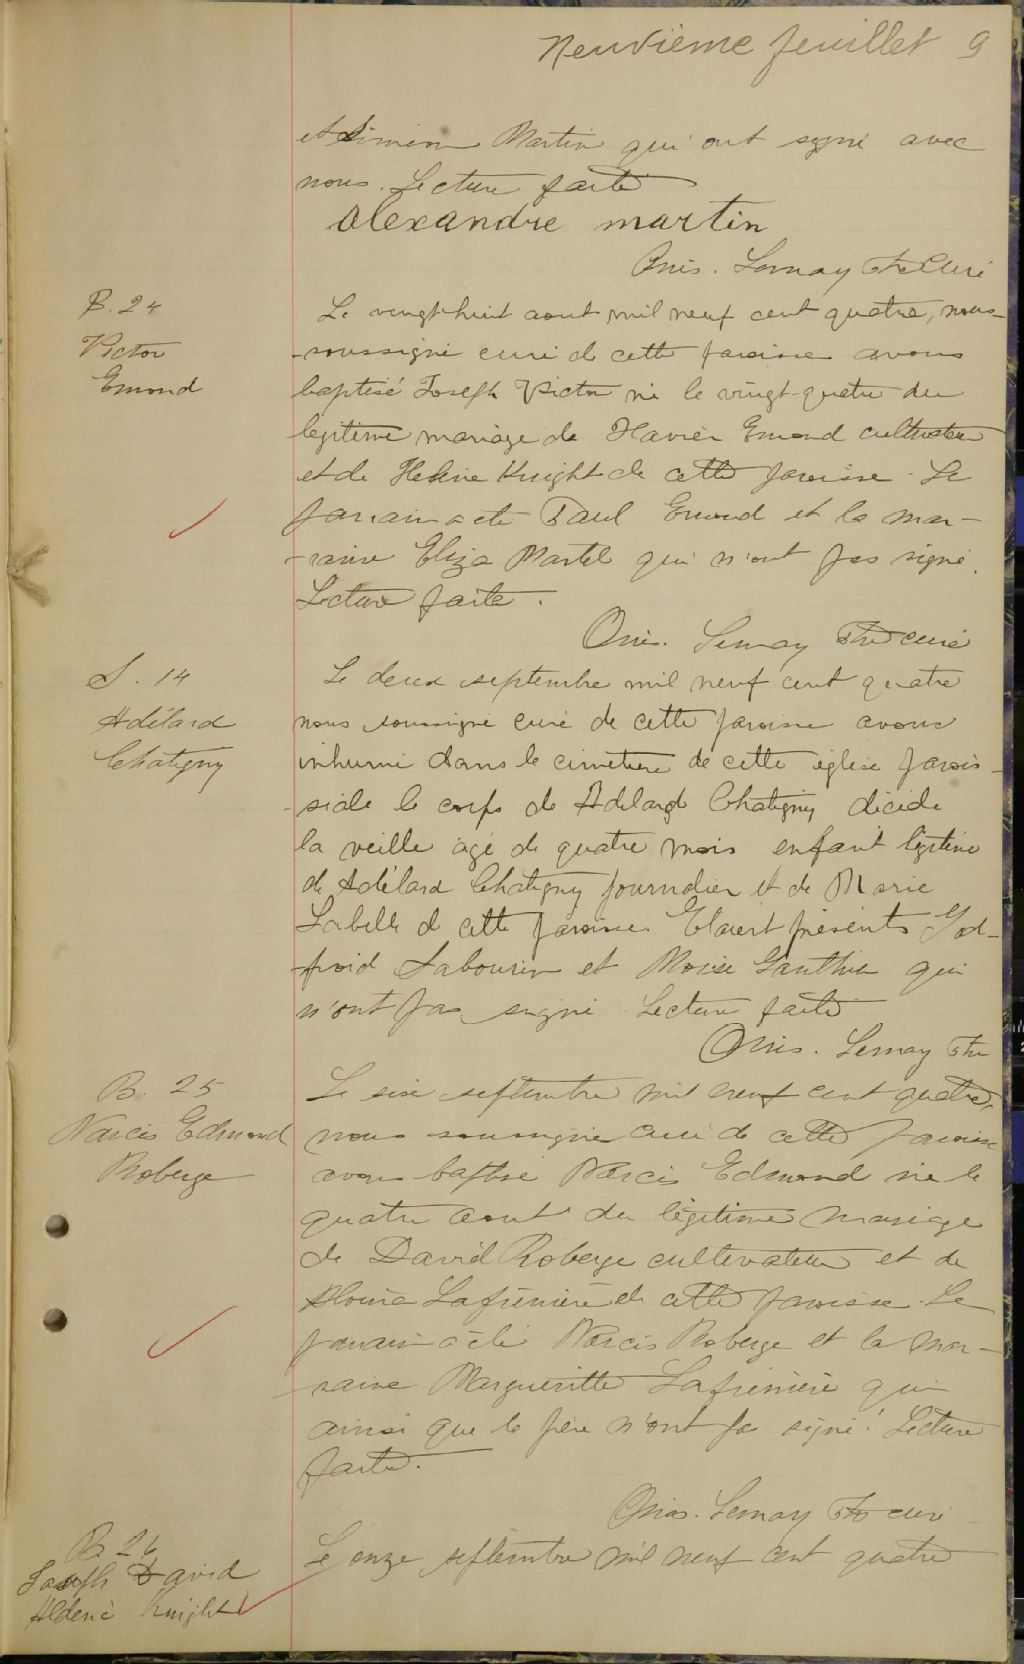 Neuvième feuillet 9
et Simeon Martin qui ont signé avec
nous. Lecture faite
alexandre martin
Onés. Lemay Ptre Curé
B. 24
Victor
Emond
Le vingt-huit aout mil neuf cent quatre, nous
soussigné curé de cette paroisse avons
baptisé Joseph Victor né le vingt-quatre du
legitime mariage de Xavier Emond cultivateur
et de Helene Knight de cette paroisse. Le
parrain a été Paul Emond et la mar-
raine Eliza Martel qui n'ont pas signé.
Lecture faite.
Onés. Lemay Ptre curé
S. 14
Adélard
Chatigny
Le deux septembre mil neuf cent quatre
nous soussigné curé de cette paroisse avons
inhumé dans le cimetiere de cette église parois-
siale le corps de Adelard Chatigny décédé
la veille agé de quatre mois enfant légitime
de Adélard Chatigny journalier et de Marie
Labelle de cette paroisse. Etaient présents God-
froid Labourin et Moise Gauthier qui
n'ont pas signé. Lecture faite
Onés. Lemay Ptre
B. 25
Narcis Edmond
Roberge
Le six septembre mil neuf cent quatre,
nous soussigné curé de cette paroisse
avons baptisé Narcis Edmond né le
quatre aout du légitime mariage
de David Roberge cultivateur et de
Lafrénière de cette paroisse. Le
parrain a été Narcis Roberge et la mar-
raine Margueritte Lafrénière qui
ainsi que le père n'ont pas signé. Lecture
faite.
Onés. Lemay Ptre curé
B. 26
Joseph David
Aldéric Knight
Le onze septembre mil neuf cent quatre